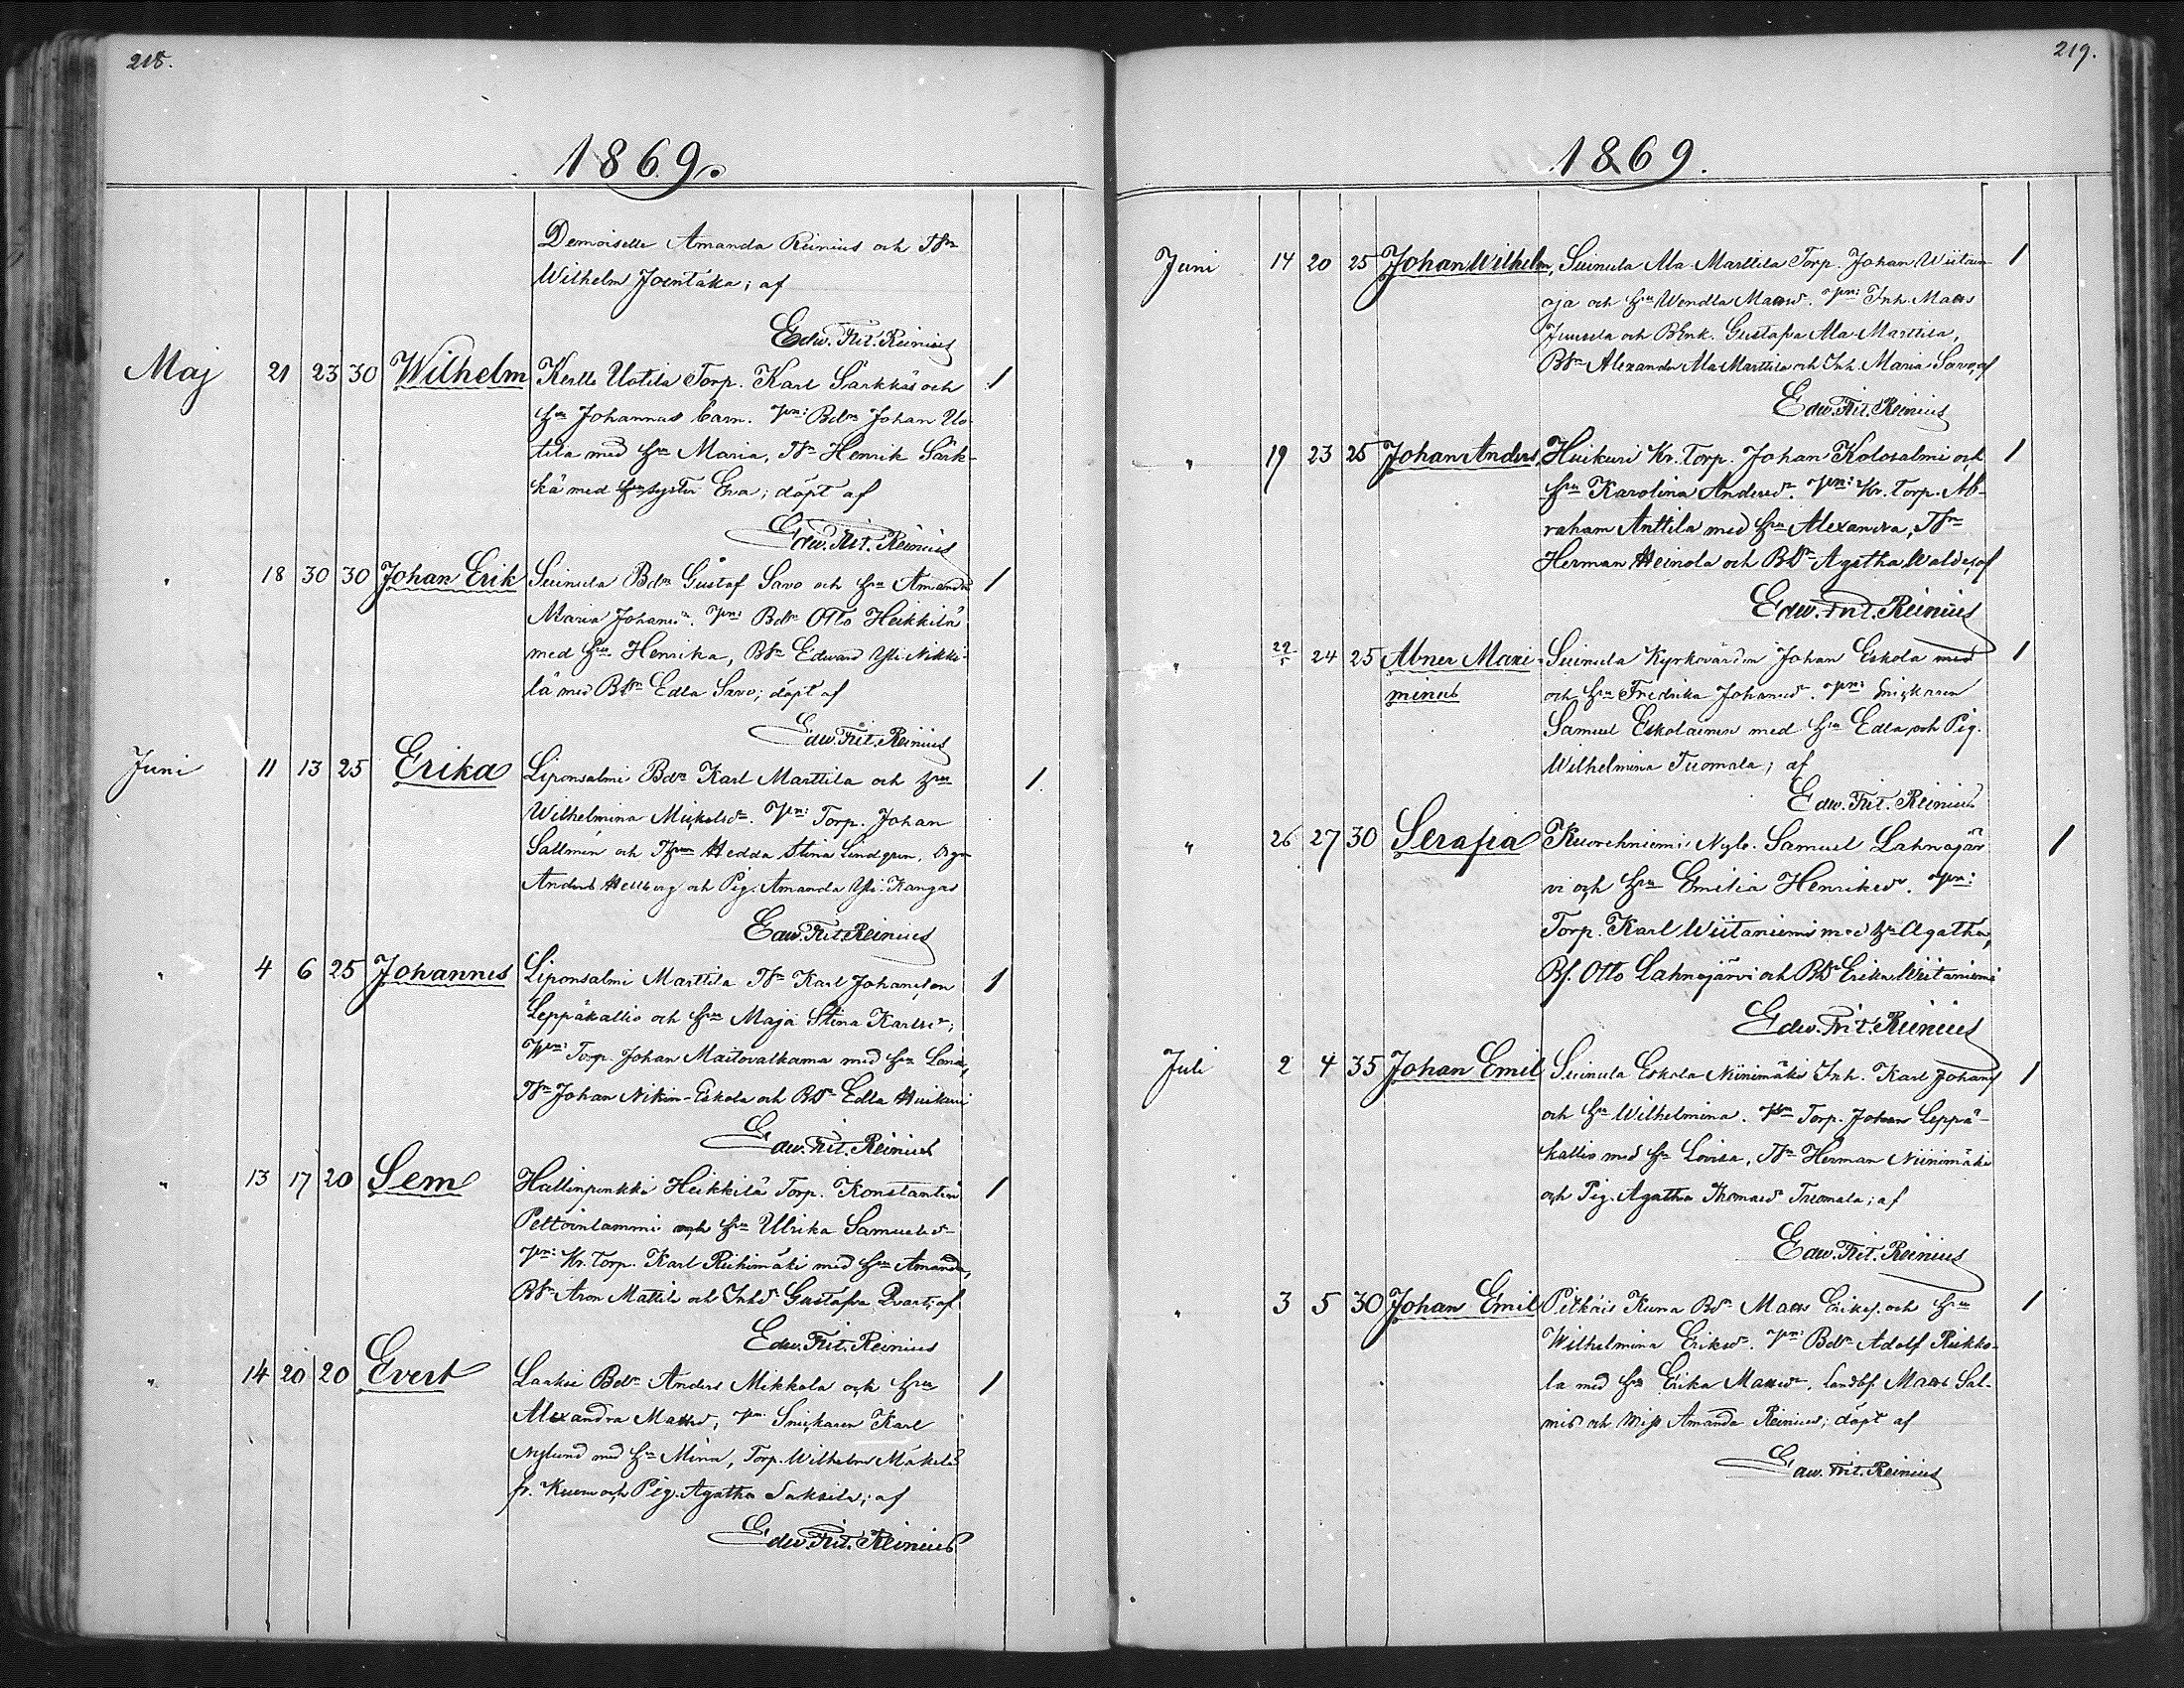 218.
1869.
Demoiselle Amanda Reinius och
Wilhelm Joentaka; af
Edw. Frit. Reinius
Maj 21 23 30 Wilhelm Kerttu Uotila Torp. Karl Sarkkäs och 1
hu Johannas barn. Vn: Bdn Johan Uo-
tila med hu Maria, Henrik Särk-
kä med syster Eva; döpt af
Edw. Frit. Reinius
" 18 30 30 Johan Erik Suinula Bdn Gustaf Savo och hu Amanda 1
Maria Johansdr. Vn: Bdn Otto Heikkilä
med hu Henrika, Bsn Edward Yli Nikki-
lä med Bdr Edla Savo; döpt af
Edw. Frit. Reinius
Juni 11 13 25 Erika Liponsalmi Bdn Karl Marttila och hu 1.
Wilhelmina Mickelsdr. Vn: Torp. Johan
Sallmén och Hedda Stina Lindgren,
Anders Hellberg och Pig. Amanda Yli-Kangas
Edw. Frit. Reinius
" 4 6 25 Johannes Liponsalmi Marttila Karl Johansson 1
Leppäkallio och hu Maja Stina Karlsdr;
Vn: Torp. Johan Maitovalkama med hu Lena,
Johan Nikin-Eskola och Bdr Edla Huikuri
Edw. Frit. Reinius
" 13 17 20 Sem Hallinpenkki Heikkilä Torp. Konstantin 1
Peltoinlammi och hu Ulrika Samuelsdr
Vn: Kr. Torp. Karl Riihimäki med hu Amanda,
Bsn Aron Mattila och Inhdr Gustafva Qvart; af
Edw. Frit. Reinius
" 14 20 20 Evert Laakso Bdn Anders Mikkola och hu 1
Alexandra Mattsd, Vn Snickaren Karl
Nylund med hu Mina, Torp. Wilhelm Mäkelä
fr. och Pig. Agatha Saksila; af
Edw. Frit. Reinius
219.
1869.
Juni 14 20 25 Johan Wilhelm, Suinula Ala-Marttila Torp. Johan Wiitan- 1
oja och hu Wendla Mattsd. Vn: Inh. Matts
Juusela och BEnk. Gustafva Ala-Marttila,
Bsn Alexander Ala Marttila och Inh. Maria Savo, af
Edw. Frit. Reinius
" 19 23 25 Johan Anders, Huikuri Kr. Torp. Johan Kolosalmi och 1
hu Karolina Andersdr. Vn: Kr. Torp. Ab-
raham Anttila med hu Alexandra,
Herman Heinola och Bdr Agatha Walde, af
Edw. Frit. Reinius
" 22/5 24 25 Abner Maxi- Suinula Kyrkovärden Johan Eskola med 1
minus och hu Fredrika Johansdr. Vn: Snickaren
Samuel Eskolainen med hu Edla, och Pig.
Wilhelmina Tuomala; af
Edw. Frit. Reinius
" 26 27 30 Serafia Kuorehniemi Nyb. Samuel Lahnajär- 1
vi och hu Emilia Henriksdr. Vn:
Torp. Karl Wiitaniemi med hu Agatha,
Bs. Otto Lahnajärvi och Bdr Erika Wiitaniemi
Edw. Frit. Reinius
Juli 2 4 35 Johan Emil Suinula Eskola Niinimäki Inh. Karl Johans 1
och hu Wilhelmina. Vn Torp. Johan Leppä-
kallio med hu Lovisa, Herman Niinimäki
och Pig. Agatha Thomasdr Tuomala; af
Edw. Frit. Reinius
" 3 5 30 Johan Emil Pitkäis Kuna Bdn Matts Eriks. och hu 1
Wilhelmina Eriksdr. Vn: Bdn Adolf Rukko-
la med hu Erika Mattsdr. Landbf. Matts Sal-
mis och Miss Amanda Reinius; döpt af
Edw. Frit. Reinius